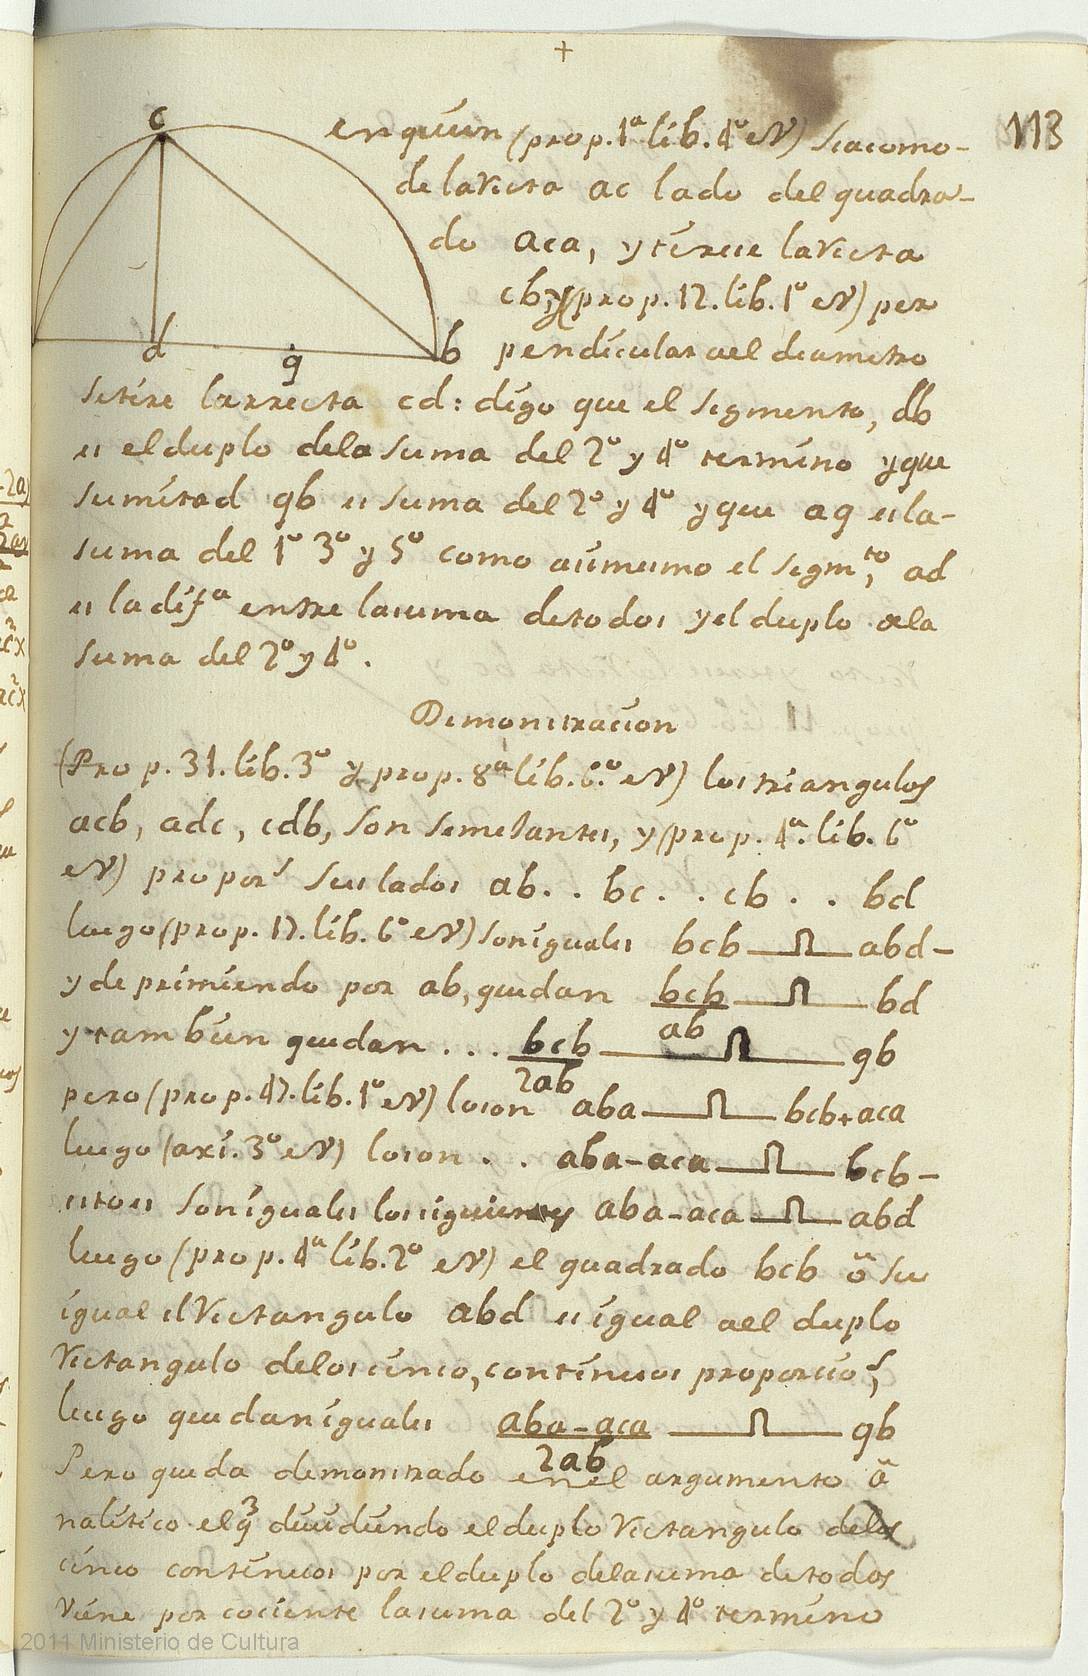 +
113
c
en quien (prop. 1ª lib. 4º eN) seacomo-
de la Recta ac lado del quadra-
do aca, y tirese la Recta
cb, y (prop. 12. lib. 1º eN) per
pendicular ael diametro
d g b
setire la rrecta cd: digo que el segmento, db
es el duplo dela suma del 2º y 4º termino y que
sumitad gb es suma del 2º y 4º y que ag es la-
suma del 1º 3º y 5º como asimismo el segm,to ad
es la difª entre lasuma detodos y el duplo dela
suma del 2º y 4º.
Demonstracion
(Prop. 31. lib. 3º y prop. 8ª lib. 6.º eN) los triangulos
acb, adc, cdb, son semejantes, y (prop. 4ª. lib. 6º
eN) proporˢ sus lados ab. . bc . . cb . . bd
luego (prop. 17. lib. 6º eN) son iguales bcb abd-
y deprimiendo por ab, quedan bcb bd
ab
y tambien quedan . . . bcb gb
2ab
pero (prop. 47. lib. 1º eN) loson aba bcb+aca
luego (axi. 3º eN) loson . . aba-aca bcb-
estoes son iguales los siguientes aba-aca abd
luego (prop. 4ª lib. 2º eN) el quadrado bcb ö su
igual el Rectangulo abd es igual ael duplo
Rectangulo delos cinco, continuos proporcioˢ,
luego quedan iguales aba-aca gb
2ab
Pero queda demonstrado en el argumento ä
nalitico el q̃ 3 diuidiendo el duplo Rectangulo delos
cinco continuos por el duplo dela suma de todos
viene por cociente la suma del 2º y 4º termino
2011 Ministerio de Cultura